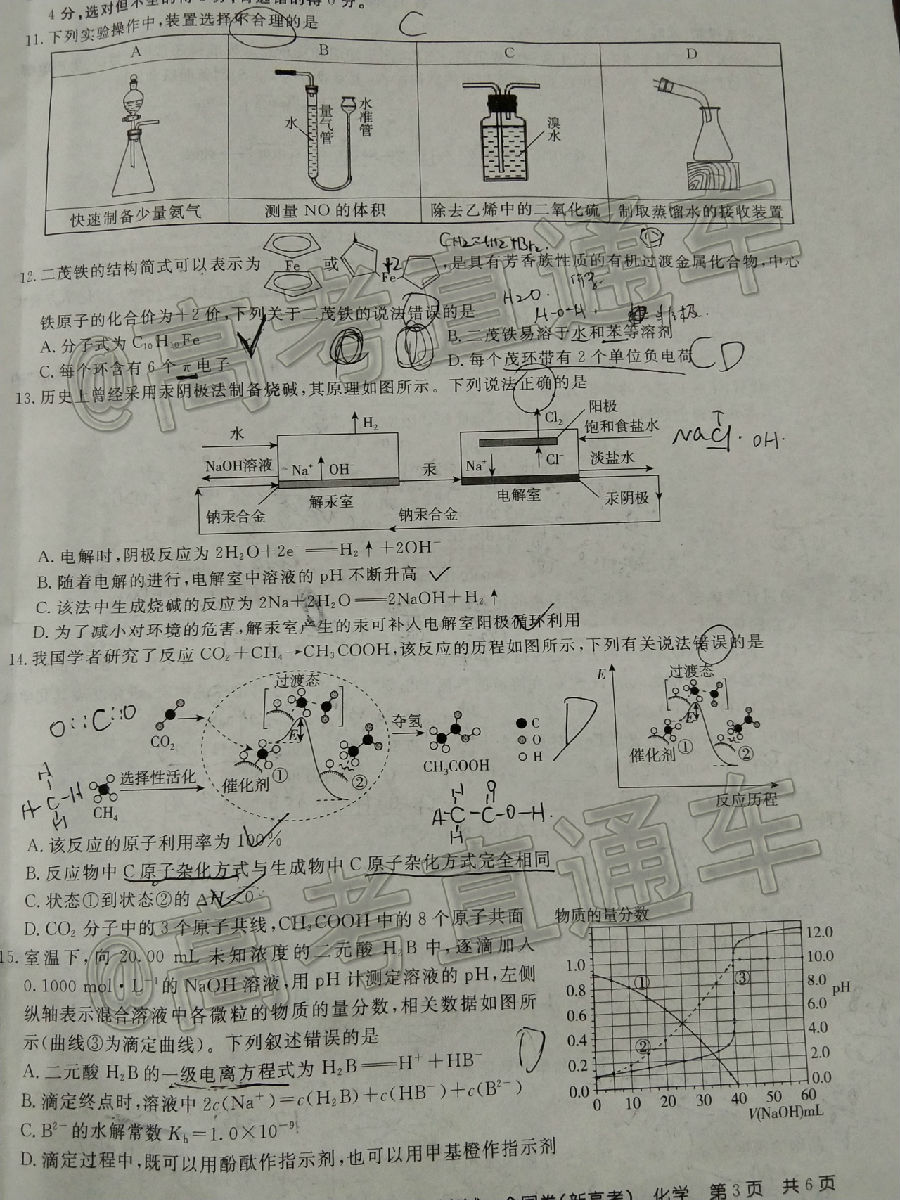 4分,选对但不全的得2分,有选错的得0分。
11.下列实验操作中,装置选择不合理的是 C
A B C D
水 量气管 水准管 溴水
快速制备少量氨气 测量NO的体积 除去乙烯中的二氧化硫 制取蒸馏水的接收装置
CH2=CH2+Br2
12.二茂铁的结构简式可以表示为 Fe 或 Fe ,是具有芳香族性质的有机过渡金属化合物,中心
+2
铁原子的化合价为+2价,下列关于二茂铁的说法错误的是
H2O
H-O-H
A.分子式为C10H10Fe B.二茂铁易溶于水和苯等溶剂
C.每个环含有6个π电子 D.每个茂环带有2个单位负电荷 CD
13.历史上曾经采用汞阴极法制备烧碱,其原理如图所示。下列说法正确的是
水 H2 Cl2 阳极 饱和食盐水
NaOH溶液 Na+ OH 汞 Na+ Cl- 淡盐水
解汞室 电解室 汞阴极
钠汞合金 钠汞合金
NaCl. OH.
A.电解时,阴极反应为2H2O+2e-══H2↑+2OH-
B.随着电解的进行,电解室中溶液的pH不断升高
C.该法中生成烧碱的反应为2Na+2H2O══2NaOH+H2↑
D.为了减小对环境的危害,解汞室产生的汞可补入电解室阳极循环利用
14.我国学者研究了反应CO2+CH4→CH3COOH,该反应的历程如图所示,下列有关说法错误的是
过渡态 E 过渡态
O::C::O CO2 E 夺氢 C O H D
催化剂 ① ② CH3COOH 催化剂 ① ②
选择性活化 反应历程
CH4
A.该反应的原子利用率为100%
B.反应物中C原子杂化方式与生成物中C原子杂化方式完全相同
C.状态①到状态②的ΔH<0
D.CO2分子中的3个原子共线,CH3COOH中的8个原子共面
15.室温下,向20.00 mL未知浓度的二元酸H2B中,逐滴加入
0.1000 mol·L-1的NaOH溶液,用pH计测定溶液的pH,左侧
纵轴表示混合溶液中各微粒的物质的量分数,相关数据如图所
示(曲线③为滴定曲线)。下列叙述错误的是 D
A.二元酸H2B的一级电离方程式为H2B══H++HB-
B.滴定终点时,溶液中2c(Na+)=c(H2B)+c(HB-)+c(B2-)
C.B2-的水解常数Kh=1.0×10-9
D.滴定过程中,既可以用酚酞作指示剂,也可以用甲基橙作指示剂
物质的量分数
1.0 0.8 0.6 0.4 0.2 0.0
① ② ③
12.0 10.0 8.0 6.0 4.0 2.0 0.0
pH
0 10 20 30 40 50 60
V(NaOH)mL
@高考直通车
@高考直通车
(新高考) 化学 第3页 共6页